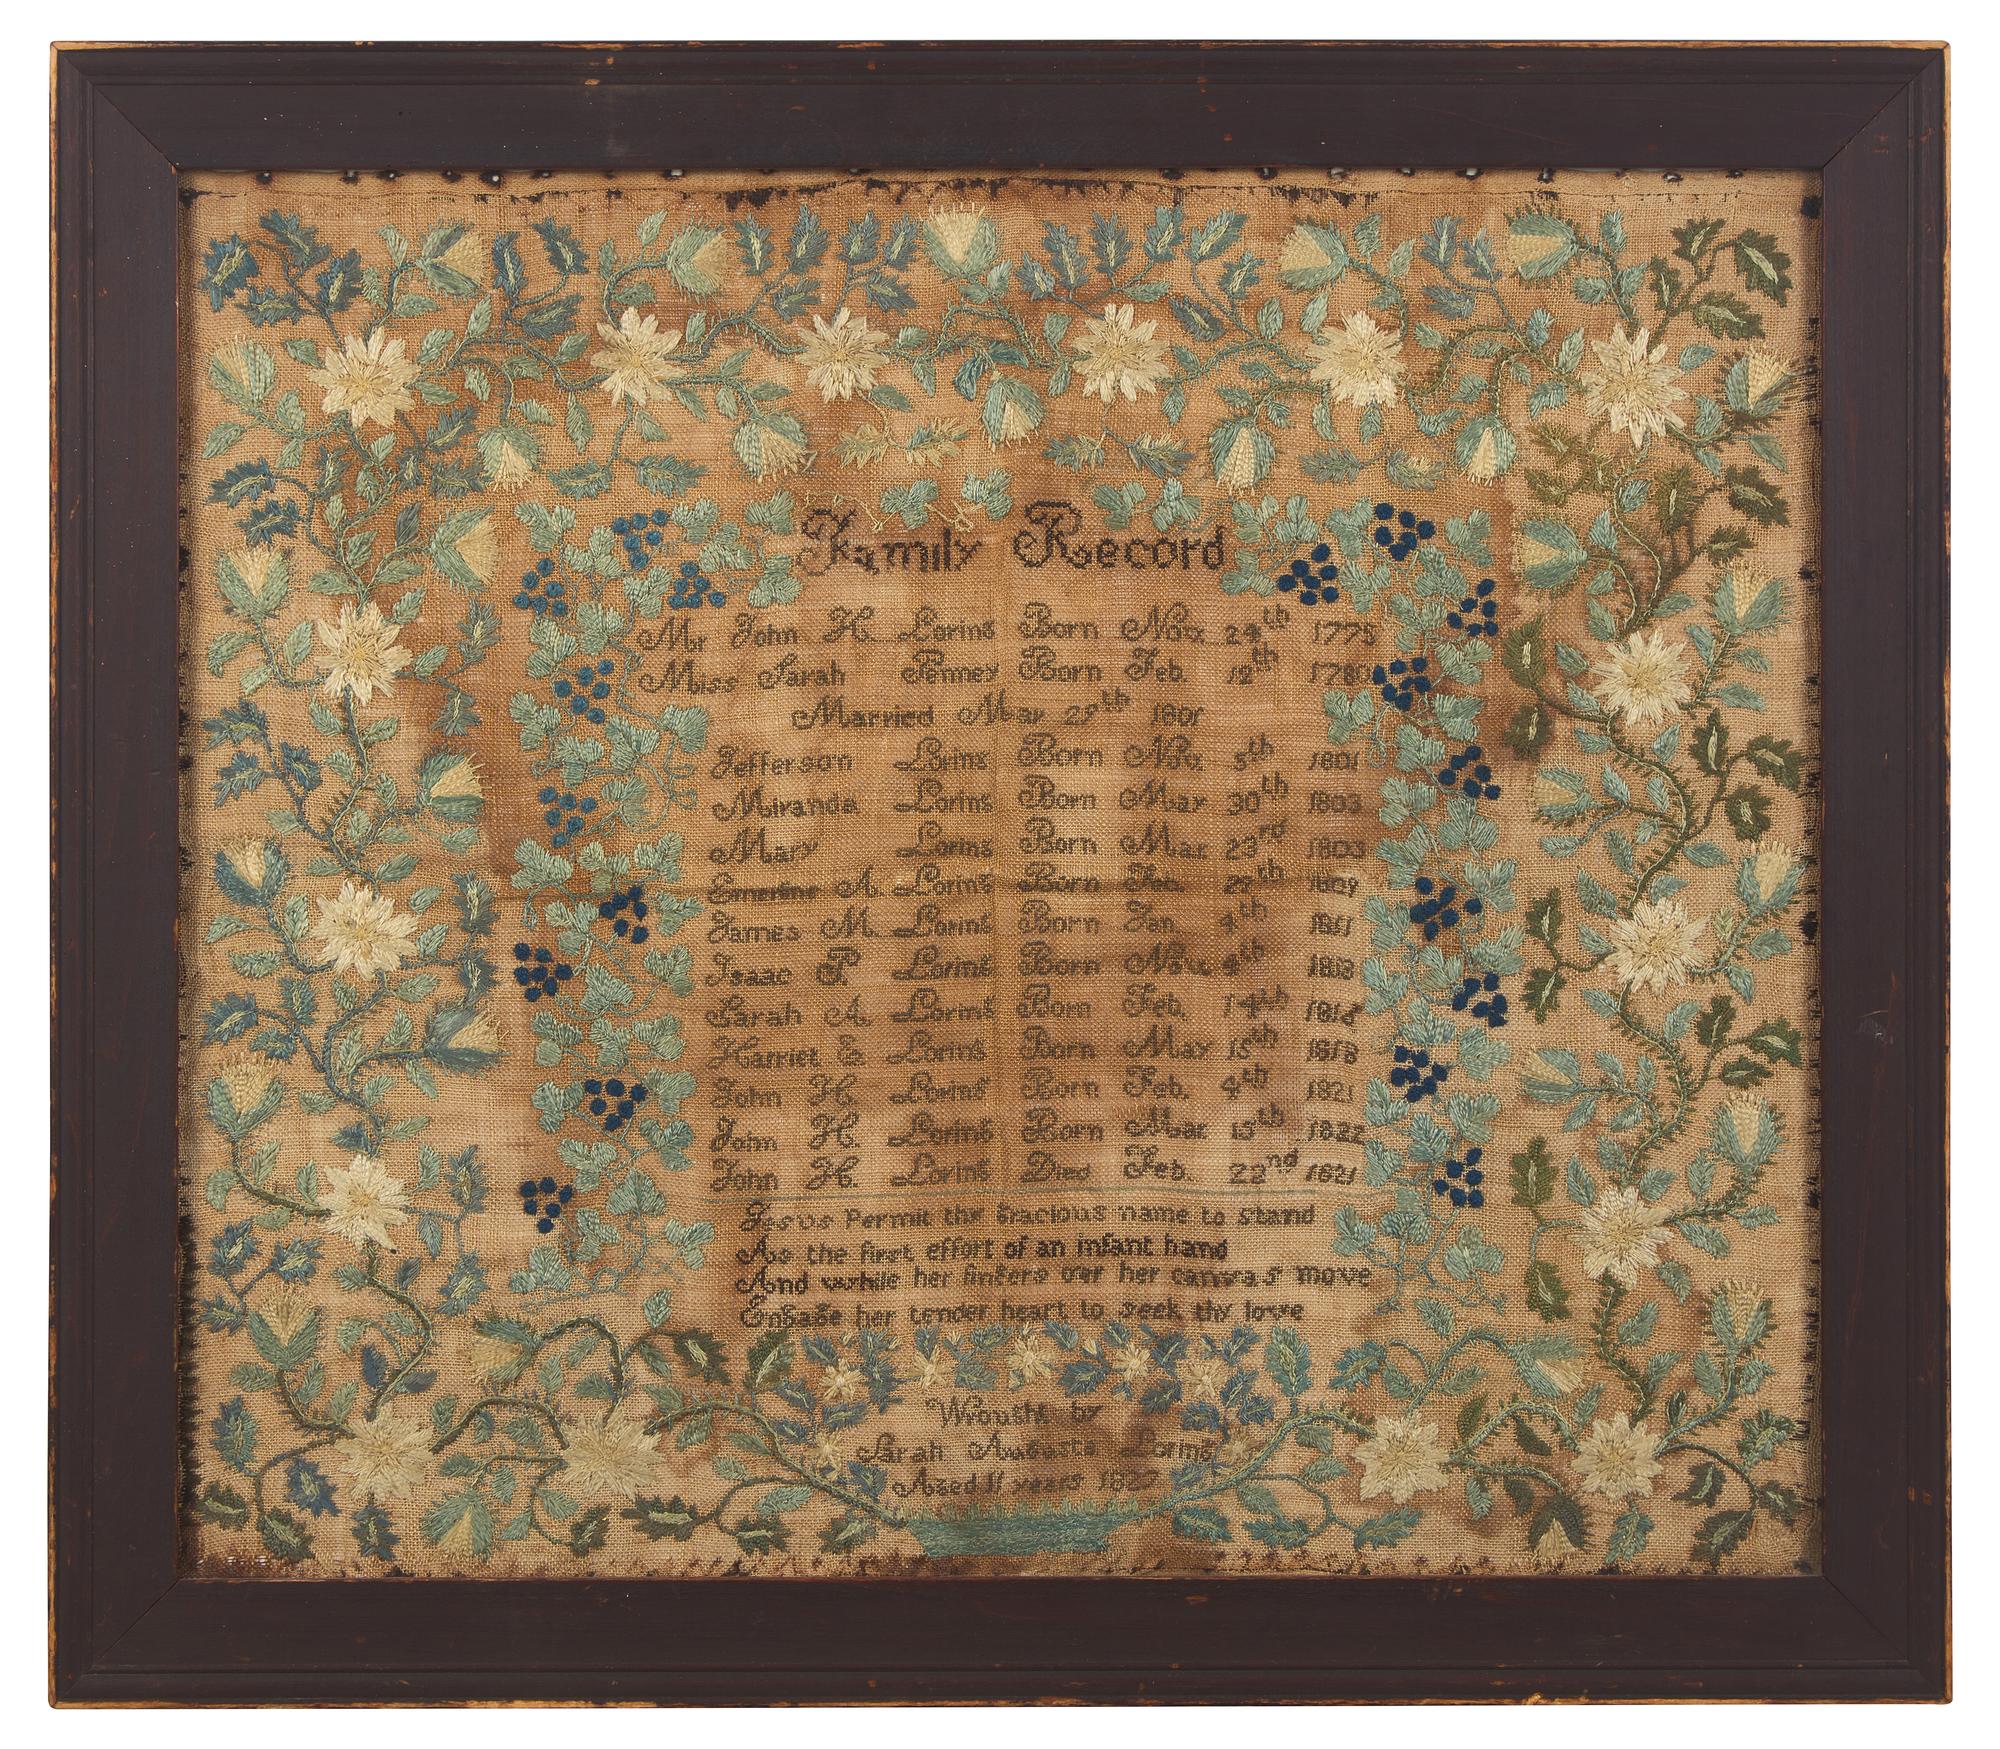 Family Record
Mr John H. Loring Born Nov. 24th 1775
Miss Sarah Penney Born Feb. 12th 1780
Married May 29th 1801
Jefferson Loring Born Nov. 5th 1801
Miranda Loring Born May 30th 1803
Mary Loring Born Mar. 23rd
A. Loring Born Feb. 29th
James M. Loring Born Jan. 4th 1811
Isaac P. Loring Born Nov. 4th 1813
Sarah A. Loring Born Feb. 14th 1816
Harriet E. Loring Born May 15th 1818
John H. Loring Born Feb. 4th 1821
John H. Loring Born Mar. 15th 1822
John H. Loring Died Feb. 22nd 1821
Jesus Permit thy gracious name to stand
As the first effort of an infant hand
And while her fingers over her canvas move
Engage her tender heart to seek thy love
Wrought by
Sarah Augusta Loring
Aged 11 years